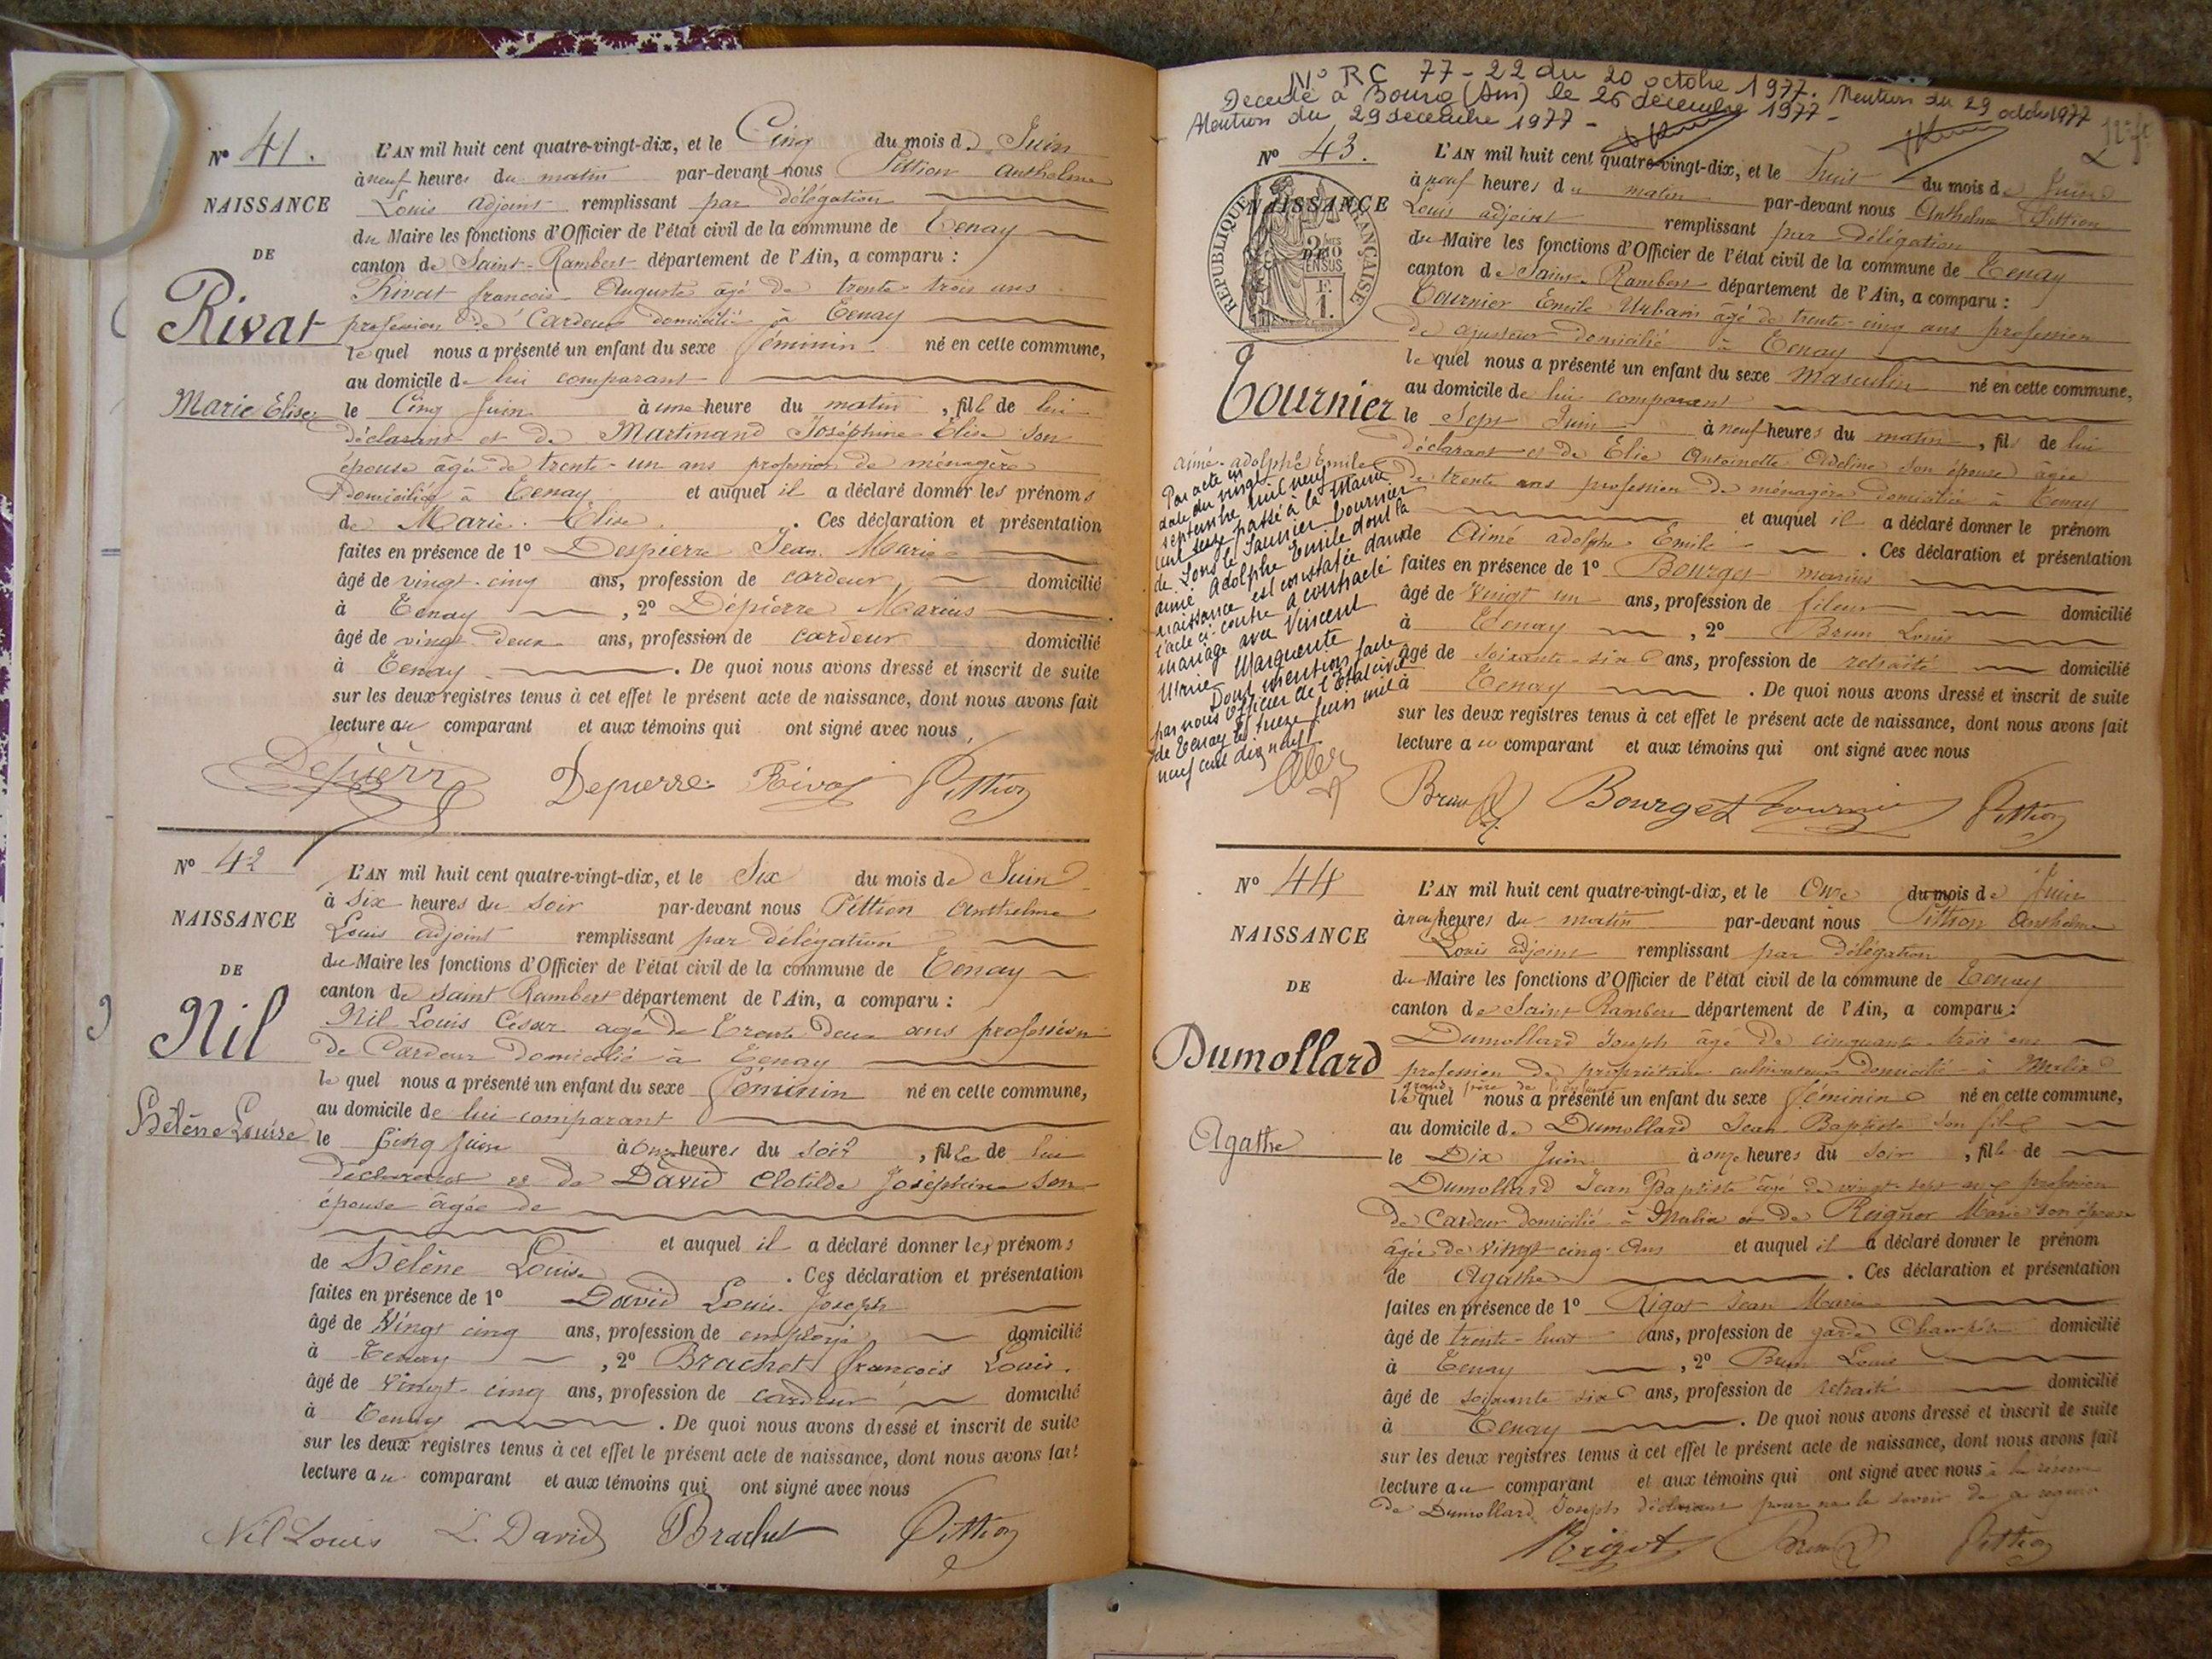 N° 41.
NAISSANCE
DE
Rivat
Marie Elise
L'AN mil huit cent quatre-vingt-dix, et le Cinq du mois de Juin
à neuf heures du matin par-devant nous Pittion Anthelme
Louis adjoint remplissant par délégation
du Maire les fonctions d'Officier de l'état civil de la commune de Tenay
canton de Saint-Rambert département de l'Ain, a comparu :
Rivat françois Auguste âgé de trente trois ans
profession de Cardeur domicilié à Tenay
lequel nous a présenté un enfant du sexe féminin né en cette commune,
au domicile de lui comparant
le Cinq Juin à une heure du matin, fille de lui
déclarant et de Martinand Joséphine Elise son
épouse âgée de trente-un ans profession de ménagère
domiciliée à Tenay et auquel il a déclaré donner les prénoms
de Marie-Elise. Ces déclaration et présentation
faites en présence de 1° Despierre Jean Marie
âgé de vingt-cinq ans, profession de cardeur domicilié
à Tenay, 2° Dépierre Marius
âgé de vingt deux ans, profession de cardeur domicilié
à Tenay. De quoi nous avons dressé et inscrit de suite
sur les deux registres tenus à cet effet le présent acte de naissance, dont nous avons fait
lecture au comparant et aux témoins qui ont signé avec nous.
Depierre Depierre Rivat Pittion
N° 42
NAISSANCE
DE
Nil
Hélène Louise
L'AN mil huit cent quatre-vingt-dix, et le Six du mois de Juin
à six heures du soir par-devant nous Pittion Anthelme
Louis adjoint remplissant par délégation
du Maire les fonctions d'Officier de l'état civil de la commune de Tenay
canton de Saint Rambert département de l'Ain, a comparu :
Nil Louis César agé de trente deux ans profession
de Cardeur domicilié à Tenay
lequel nous a présenté un enfant du sexe féminin né en cette commune,
au domicile de lui comparant
le Cinq Juin à onze heures du soir, fille de lui
déclarant et de David Clotilde Joséphine son
épouse âgée de
et auquel il a déclaré donner les prénoms
de Hélène Louise. Ces déclaration et présentation
faites en présence de 1° David Louis Joseph
âgé de Vingt cinq ans, profession de employé domicilié
à Tenay, 2° Brachet françois Louis
âgé de vingt-cinq ans, profession de cardeur domicilié
à Tenay. De quoi nous avons dressé et inscrit de suite
sur les deux registres tenus à cet effet le présent acte de naissance, dont nous avons fait
lecture au comparant et aux témoins qui ont signé avec nous
Nil Louis L. David Brachet Pittion
N° RC 77-22 du 20 octobre 1977. Mention du 29 octobre 1977
Décédé à Bourg (Ain) le 26 décembre 1977 -
Mention du 29 décembre 1977 -
N° 43.
NAISSANCE
DE
REPUBLIQUE FRANÇAISE
Tournier
aimé-adolphe Emile
Par acte en
date du vingt
septembre mil neuf
cent seize passé à la Mairie
de Lons le Saunier Tournier
aimé Adolphe Emile dont la
naissance est constatée dans
l'acte ci-contre a contracté
mariage avec Vincent
Marie Marguerite
Dont mention faite
par nous Officier de l'Etat civil
de Tenay le treize juin mil
neuf cent dix neuf
L'AN mil huit cent quatre-vingt-dix, et le huit du mois de Juin
à neuf heures du matin par-devant nous Anthelme Pittion
Louis adjoint remplissant par délégation
du Maire les fonctions d'Officier de l'état civil de la commune de Tenay
canton de Saint-Rambert département de l'Ain, a comparu :
Tournier Emile Urbain âgé de trente-cinq ans profession
de ajusteur domicilié à Tenay
lequel nous a présenté un enfant du sexe masculin né en cette commune,
au domicile de lui comparant
le Sept Juin à neuf heures du matin, fils de lui
déclarant et de Elie Antoinette Adeline son épouse âgée
de trente ans profession de ménagère domiciliée à Tenay
et auquel il a déclaré donner le prénom
de Aimé adolphe Emile. Ces déclaration et présentation
faites en présence de 1° Bourget marius
âgé de vingt un ans, profession de fileur domicilié
à Tenay, 2° Brun Louis
âgé de soixante-six ans, profession de retraité domicilié
à Tenay. De quoi nous avons dressé et inscrit de suite
sur les deux registres tenus à cet effet le présent acte de naissance, dont nous avons fait
lecture au comparant et aux témoins qui ont signé avec nous
Brun Bourget Tournier Pittion
N° 44
NAISSANCE
DE
Dumollard
Agathe
L'AN mil huit cent quatre-vingt-dix, et le Onze du mois de Juin
à neuf heures du matin par-devant nous Pittion Anthelme
Louis adjoint remplissant par délégation
du Maire les fonctions d'Officier de l'état civil de la commune de Tenay
canton de Saint Rambert département de l'Ain, a comparu :
Dumollard Joseph âgé de cinquante trois ans
profession de propriétaire cultivateur domicilié à Malix
grand-père de l'enfant
lequel nous a présenté un enfant du sexe féminin né en cette commune,
au domicile de Dumollard Jean Baptiste son fils
le Dix Juin à onze heures du soir, fille de
Dumollard Jean Baptiste âgé de vingt sept ans profession
de Cardeur domicilié à Malix et de Reignor Marie son épouse
âgée de vingt cinq ans et auquel il a déclaré donner le prénom
de Agathe. Ces déclaration et présentation
faites en présence de 1° Rigot Jean Marie
âgé de trente-huit ans, profession de garde Champêtre domicilié
à Tenay, 2° Brun Louis
âgé de soixante six ans, profession de retraité domicilié
à Tenay. De quoi nous avons dressé et inscrit de suite
sur les deux registres tenus à cet effet le présent acte de naissance, dont nous avons fait
lecture au comparant et aux témoins qui ont signé avec nous à la réserve
de Dumollard Joseph déclarant pour ne le savoir de ce requis
Rigot Brun Pittion